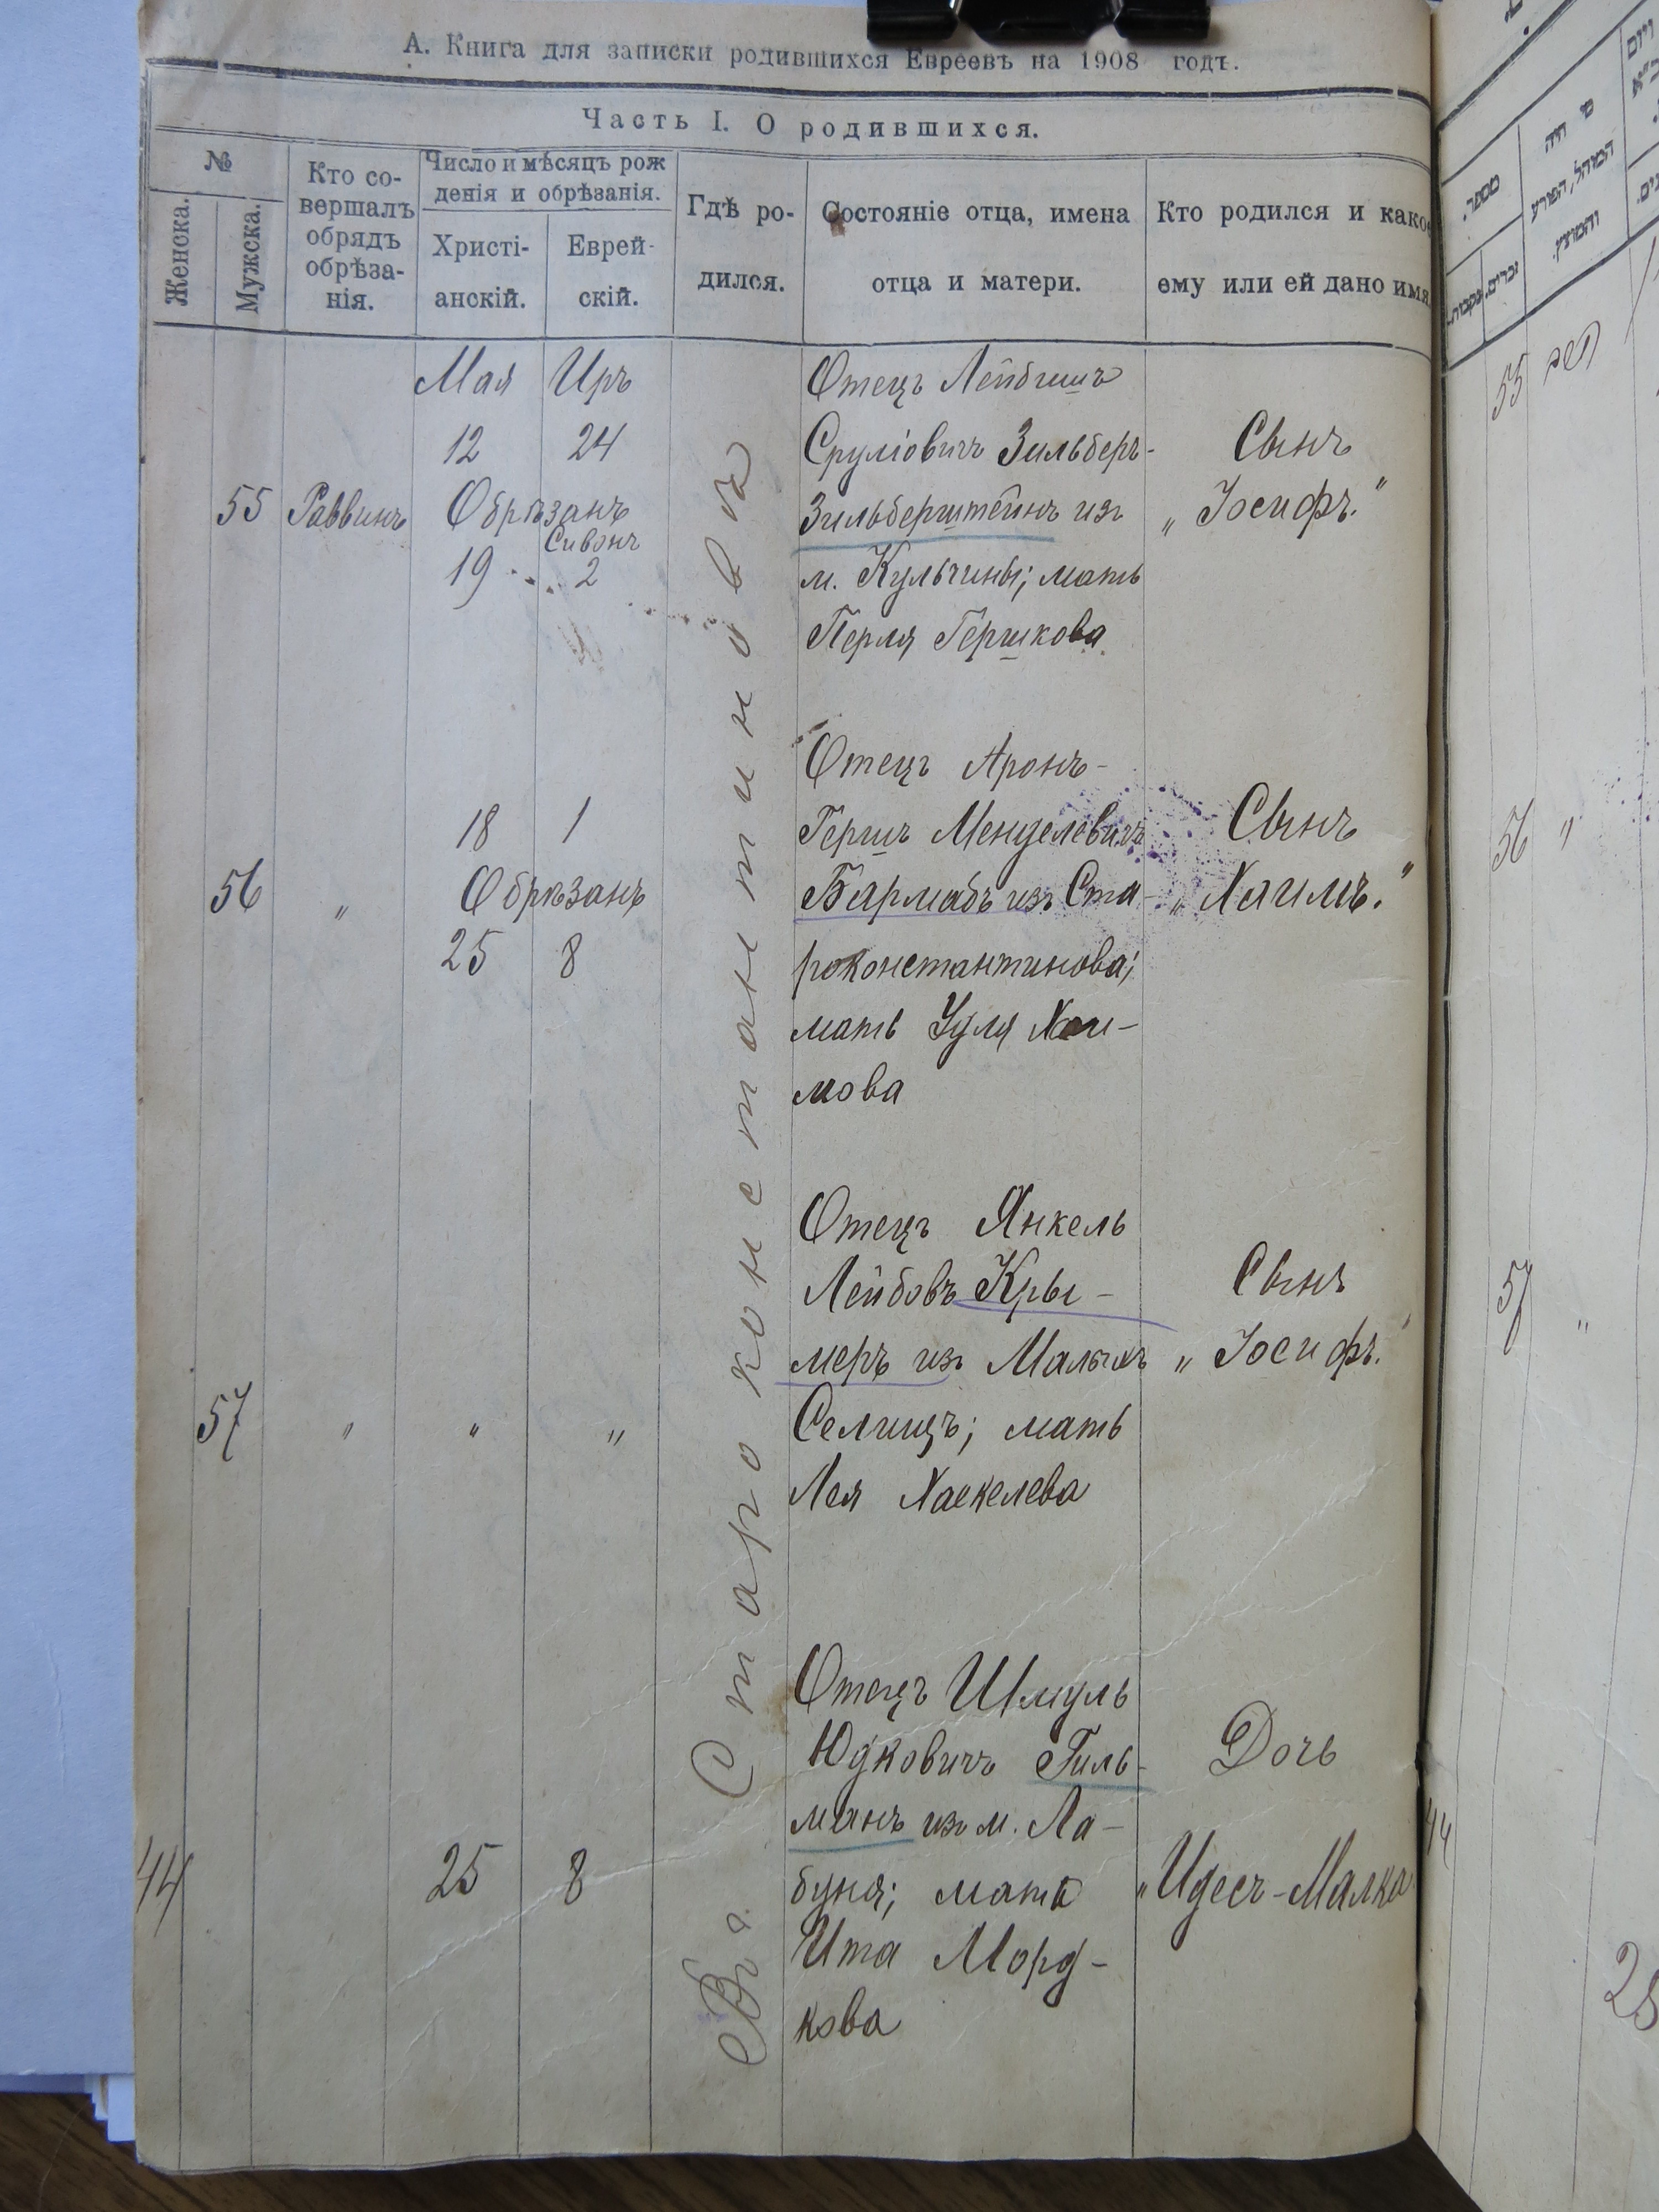 А. Книга для записки родившихся Евреевъ на 1908 годъ.
Часть I. О родившихся.
№
Женска.
Мужска.
Кто со-
вершалъ
обрядъ
обрѣза-
нія.
Число и мѣсяцъ рож
денія и обрѣзанія.
Христі-
анскій.
Еврей-
скій.
Гдѣ ро-
дился.
Состояніе отца, имена
отца и матери.
Кто родился и какое
ему или ей дано имя
Въ г. Староконстантиновѣ
55
Раввинъ
Мая Иръ
12 24
Обрѣзанъ
Сивонъ
19 2
Отецъ Лейбишъ
Сруліовичъ Зильберъ-
Зильберштейнъ изъ
м. Кульчины; мать
Перля Гершкова
Сынъ
„Іосифъ."
56
"
18 1
Обрѣзанъ
25 8
Отецъ Аронъ-
Гершъ Менделевичъ
Бармабъ изъ Ста-
роконстантинова;
мать Удля Хаи-
мова
Сынъ
„Хаимъ."
57
" " "
Отецъ Янкель
Лейбовъ Кры-
меръ изъ Малыхъ
Селищъ; мать
Лея Хаекелева
Сынъ
„Іосифъ."
44
25 8
Отецъ Шмуль
Юдковичъ Гиль-
манъ изъ м. Ла-
буня; мать
Ита Морд-
кова
Дочь
„Идесъ-Малка
מספר.
זכרים.
נקבות.
מי היה
המוהל, הפורע
והמוצץ.
55
56 "
57 "
44